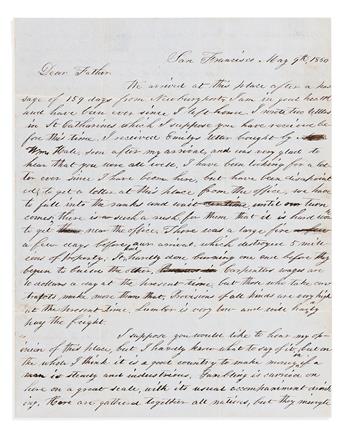 San Francisco May 9th 1850
Dear Father
We arrived at this place after a pas-
sage of 159 days from Newburyport, I am in good health
and have been ever since I left home. I wrote two letters
in St Catharines which I suppose you have received be-
fore this time. I received Emilys letter bought by
Wm Hale, soon after my arrival, and was very glad to
hear that you were all well, I have been looking for a let-
ter ever since I have been here, but have been disappoint-
ed; to get a letter at this place from the office, we have
to fall into the ranks and wait until our turn
comes, there is such a rush for them that it is hard work
to get near the office. There was a large fire
a few days before our arrival, which destroyed 5 mile
ions of property. It hardly done burning one once before they
began to build the other, Carpenters wages are
10 dollars a day at the present time, but those who take con-
tracts make more than that, Provisions of all kinds are very high
at the present time, Lumber is very low and will hardly
pay the freight.
I suppose you would like to hear my op-
inion of this place, but I hardly know what to say of it, but on
the whole I think it is a good country to make money if a
man is steady and industrious. Gambling is carried on
here on a great scale, with its usual accompaniment drink-
ing. Here are gathered together all natives, but they mingle